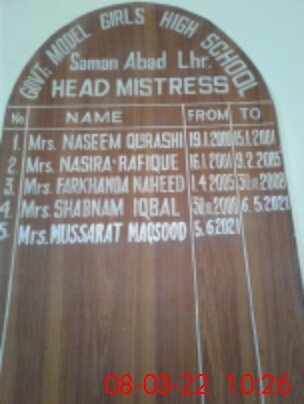 GOVT. MODEL GIRLS HIGH SCHOOL
Saman Abad Lhr.
HEAD MISTRESS
No. NAME FROM TO
1. Mrs. NASEEM QURASHI 19.1.2000 15.1.2001
2. Mrs. NASIRA RAFIQUE 16.1.2001 9.2.2005
3. Mrs. FARKHANDA NAHEED 1.4.2005
4. Mrs. SHABNAM IQBAL 6.5.2021
5. Mrs. MUSSARAT MAQSOOD 5.6.2021
08-03-22 10:26